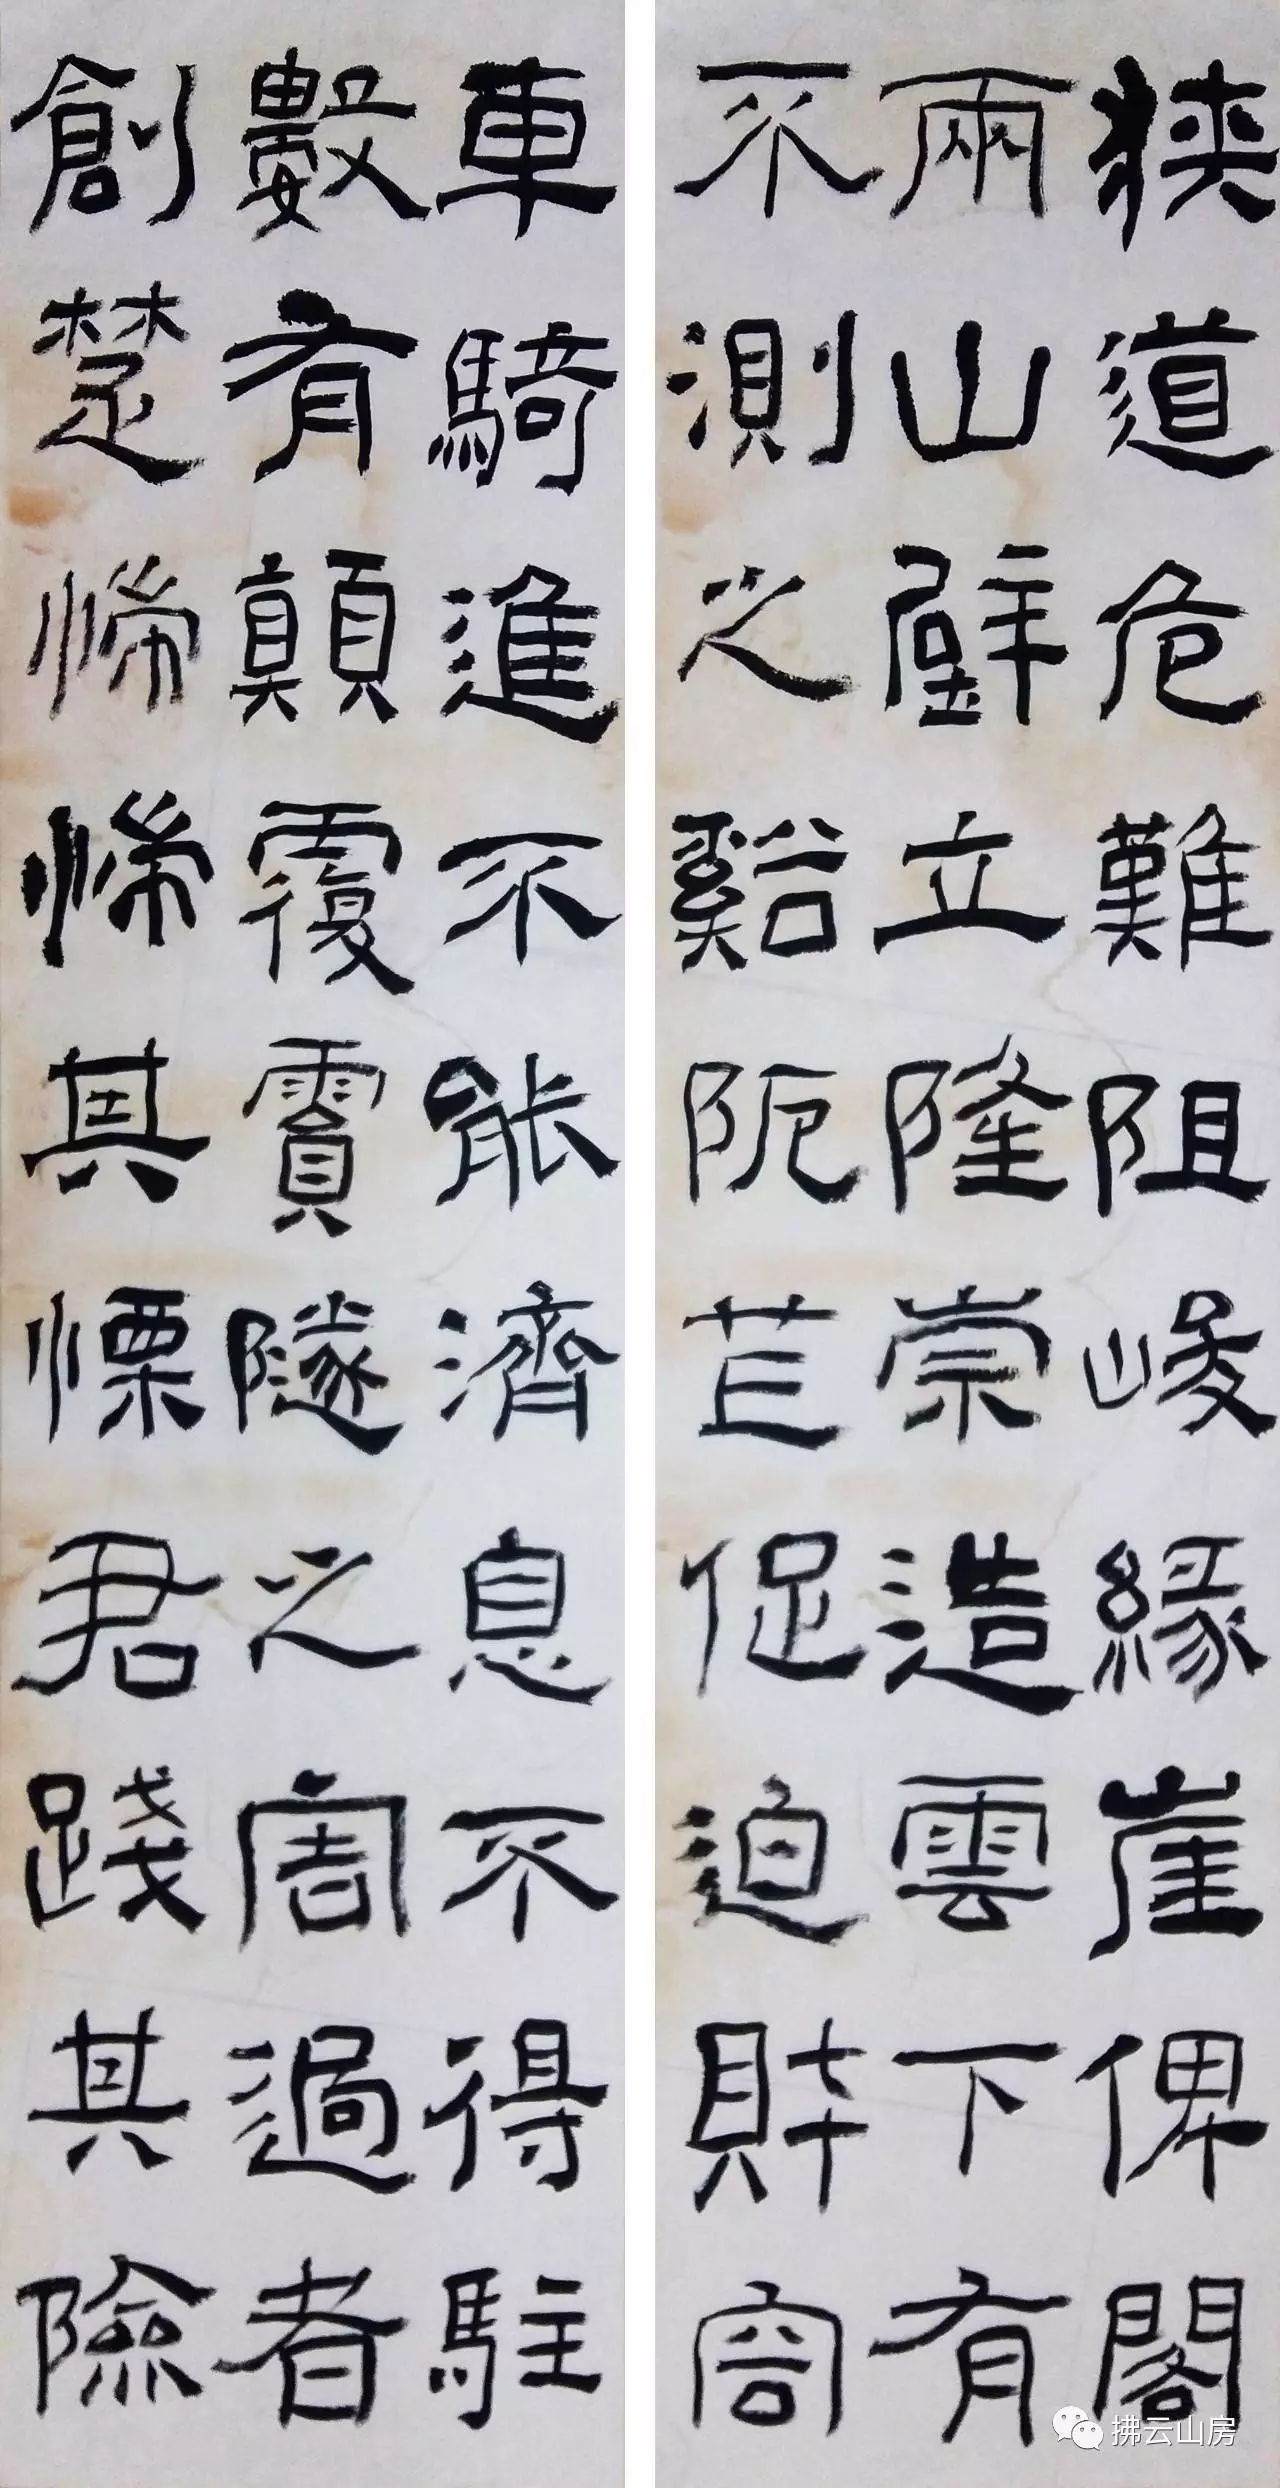 狹道危難阻峻緣崖俾閣
兩山壁立隆崇造雲下有
不測之谿阨芢促迫財容
車騎進不能濟息不得駐
數有顛覆霣隧之害過者
創楚惵惵其慄君踐其險
拂云山房